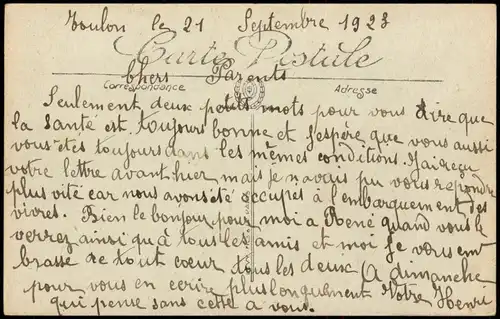 Toulon le 21 Septembre 1923
Carte Postale
Chers Parents
Correspondance Adresse
Seulement deux petits mots pour vous dire que
la santé est toujours bonne et j'espère que vous aussi
vous êtes toujours dans les mêmes conditions. J'ai reçu
votre lettre avant hier mais je n'avais pu vous répondre
plus vite car nous avons été occupés à l'embarquement des
vivres. Bien le bonjour pour moi a René quand vous le
verrez ainsi qu'à tous les amis et moi je vous em
brasse de tout coeur tous les deux (A dimanche
pour vous en ecrire plus longuement Votre Henri
qui pense sans cette a vous.